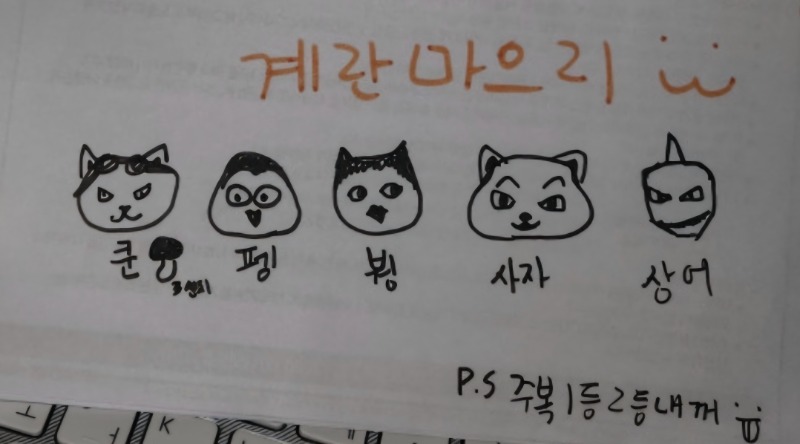 계란마으리
쿤 펭 뷩 사자 상어
P.S 주복 1등 2등 내꺼
K